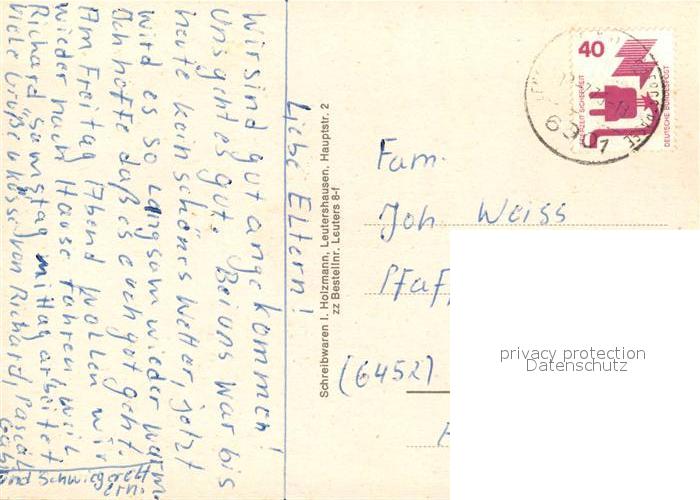 Liebe Eltern!
Wir sind gut angekommen!
Uns geht es gut. Bei uns war bis
heute kein schönes Wetter, jetzt
wird es so langsam wieder warm.
Ich hoffe daß es euch gut geht.
Am Freitag Abend wollen wir
wieder nach Hause fahren weil
Richard Samstag mittag arbeitet
Viele Grüße u Küsse von Richard, Pascal
Gabi
und Schwiegerelt
ern.
Schreibwaren I. Holzmann, Leutershausen, Hauptstr. 2
zz Bestellnr. Leuters 8-f
40
JEDERZEIT SICHERHEIT
DEUTSCHE BUNDESPOST
6901
Fam.
Joh Weiss
Pfaf
(6452)
privacy protection
Datenschutz